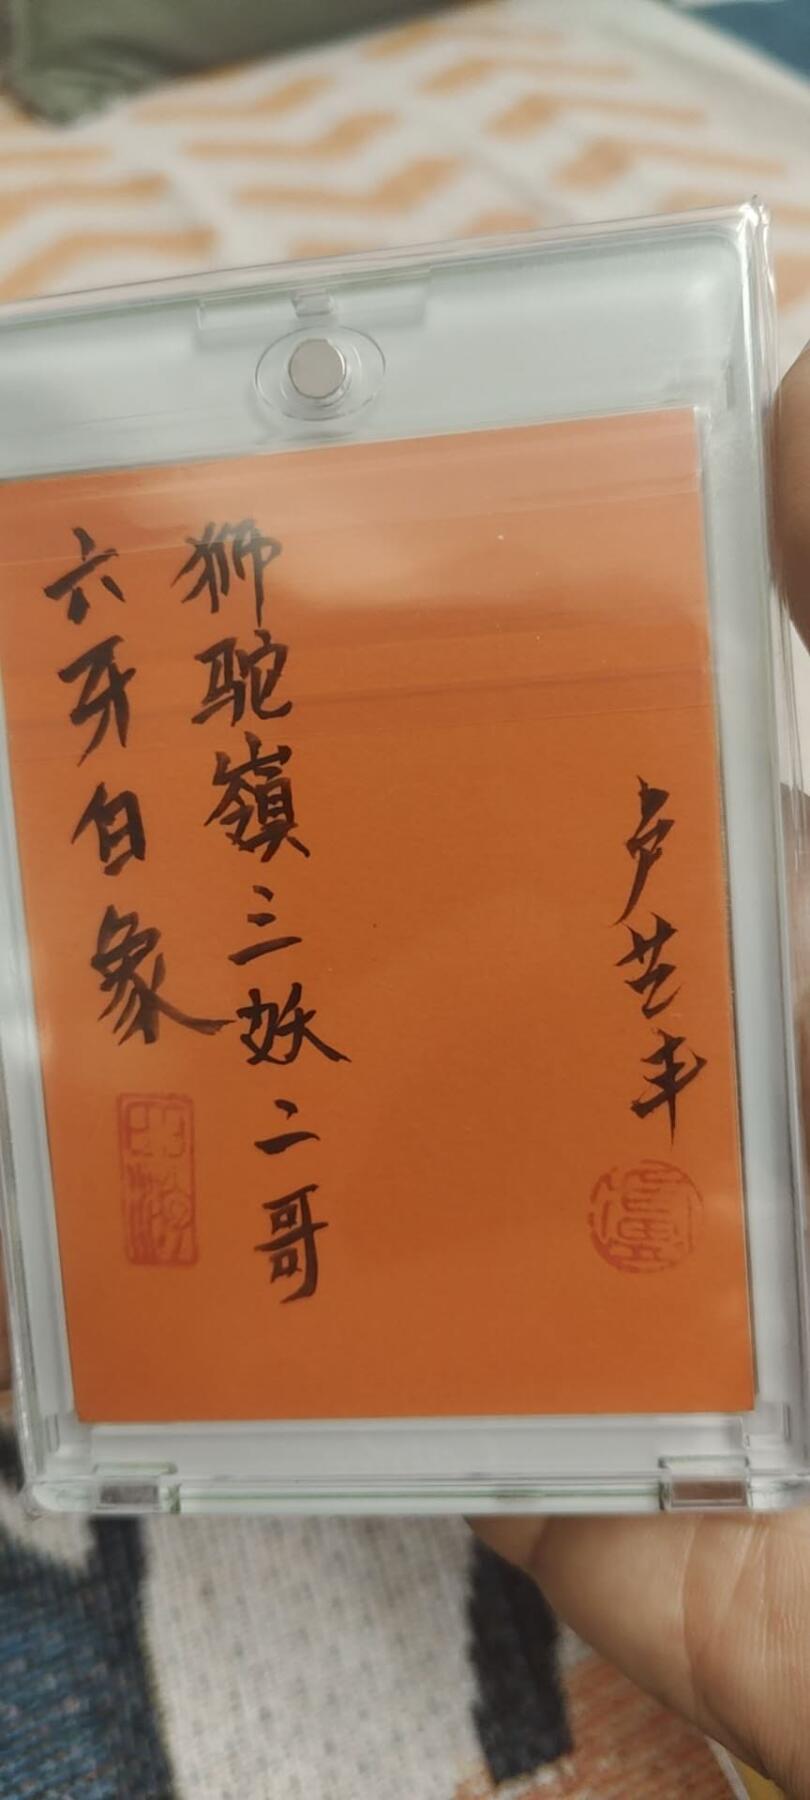 卢芸丰
狮驼嶺三妖二哥
六牙白象